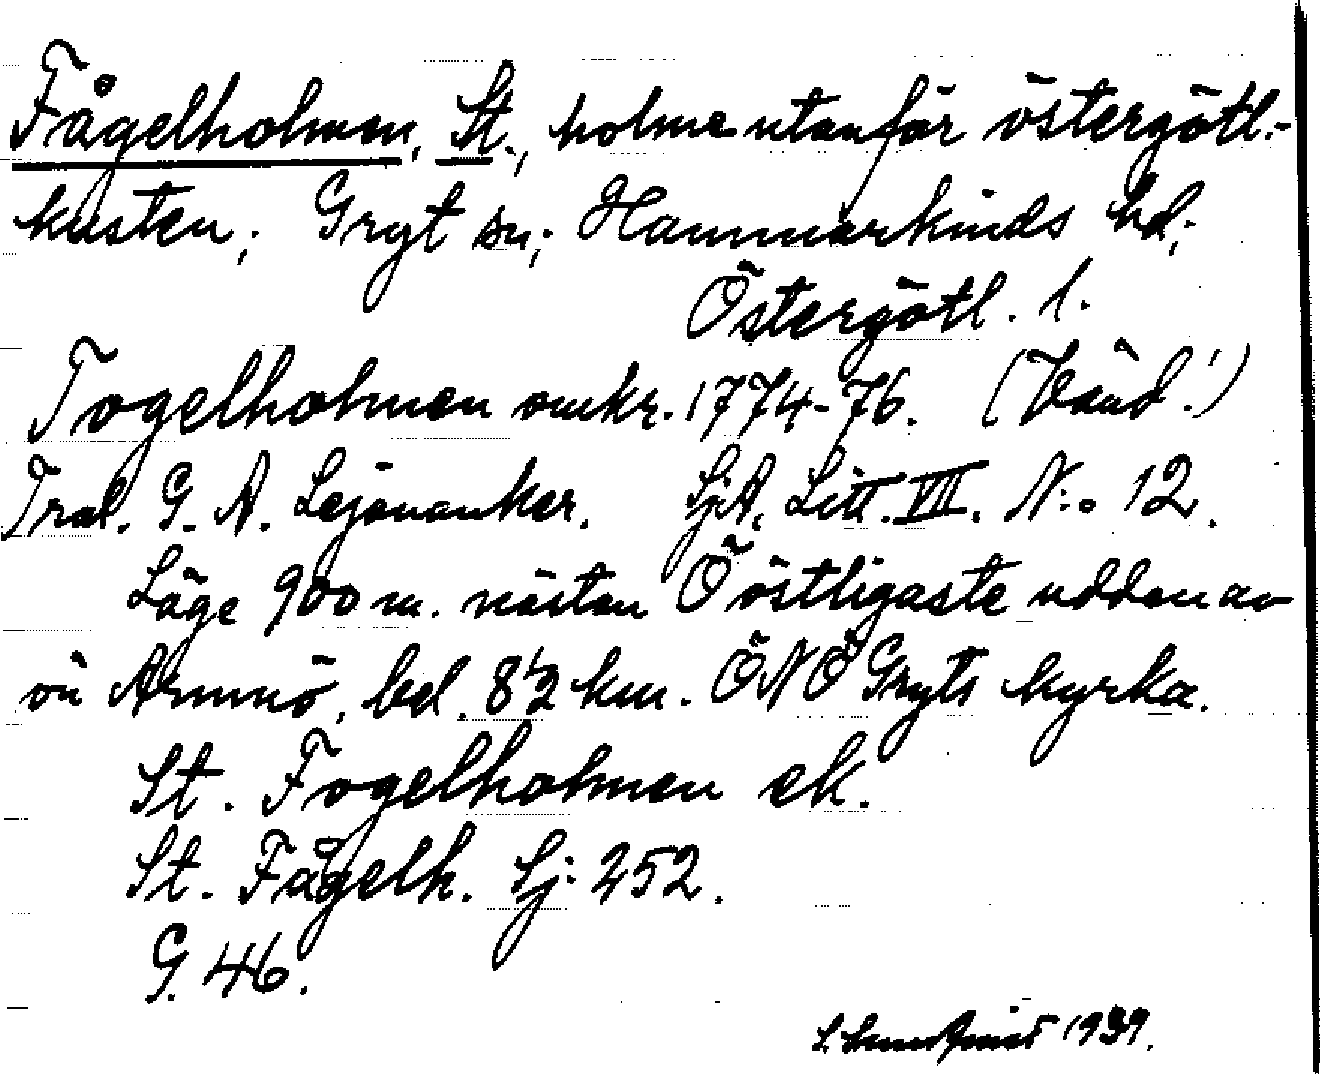 Fågelholmen, St., holme utanför östergötl.-
kusten; Gryt sn; Hammarkinds hd;
Östergötl. l.
Fogelholmen omkr. 1774-76. (Vänd!)
Trol. G. A. Lejonanker. SjA, Litt. VII. N:o 12.
Läge 900 m. nästan Ö östligaste udden av
ön Armnö, bel. 8½ km. ÖNÖ Gryts kyrka.
St. Fogelholmen ek.
St. Fågelh. Sj. 252.
G. 46.
1939.